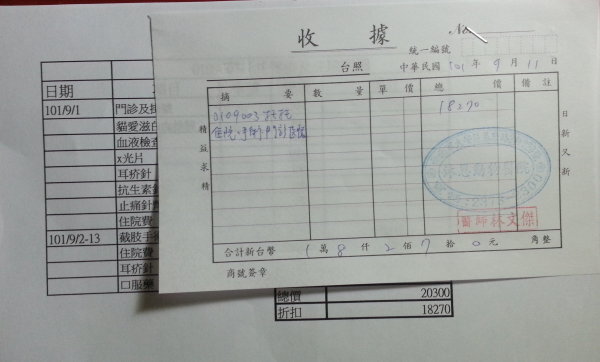 收據
統一編號
台照
中華民國 101 年 9 月 11 日
摘要 數量 單價 總價 備註
18270
住院、手術、門診
精益求精
日新又新
醫師林文傑
合計新台幣 1 萬 8 仟 2 佰 7 拾 0 元 角整
商號簽章
日期
101/9/1 門診及掛
貓愛滋白
血液檢查
x光片
耳疥針
抗生素針
止痛針
住院費
101/9/2-13 截肢手術
住院費
耳疥針
口服藥
總價 20300
折扣 18270